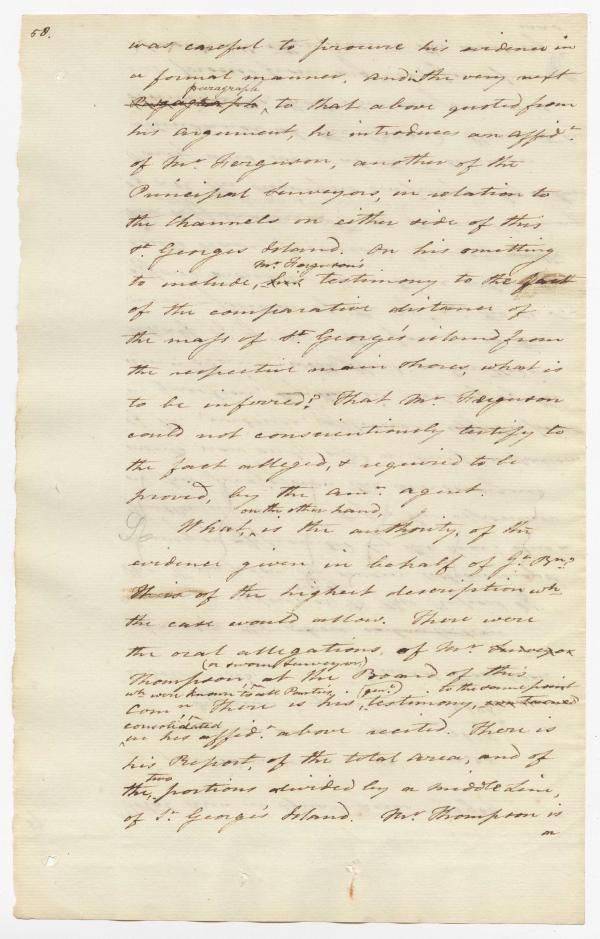 58.
was careful to procure his evidence in
a formal manner. And the very next
paragraph
Paragraph, to that above quoted from
his argument, he introduces an affid.t
of Mr. Ferguson, another of the
Principal Surveyors, in relation to
the Channels on either side of this
St. Georges Island. On his omitting
Mr. Ferguson's
to include, testimony to the fact
of the comparative distance of
the mass of St. George's island from
the respective main shores, what is
to be inferred? That Mr. Ferguson
could not conscientiously testify to
the fact alleged, & required to be
proved, by the amn. agent.
on the other hand,
What, is the authority, of the
evidence given in behalf of Gt. Bn.?
It is of the highest description wh.
the case would allow. There were
the oral allegations, of Mr. Surveyor
(a sworn Surveyor)
Thompson, at the Board of this
wh. were known to all Parties. (gen.l) to the same point
Comn. There is his, testimony,
consolidated
in his affid.t above recited. There is
his Report, of the total area, and of
two
the, portions divided by a middle Line,
of St. George's Island. Mr. Thompson is
on